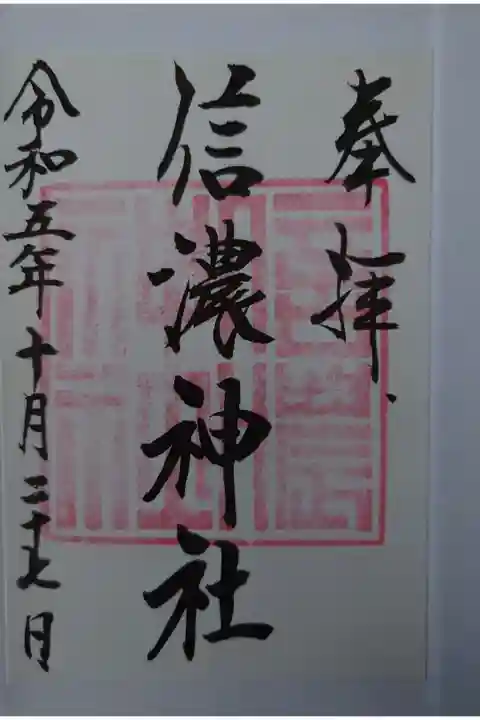 奉拝
信濃神社
令和五年十月二十七日